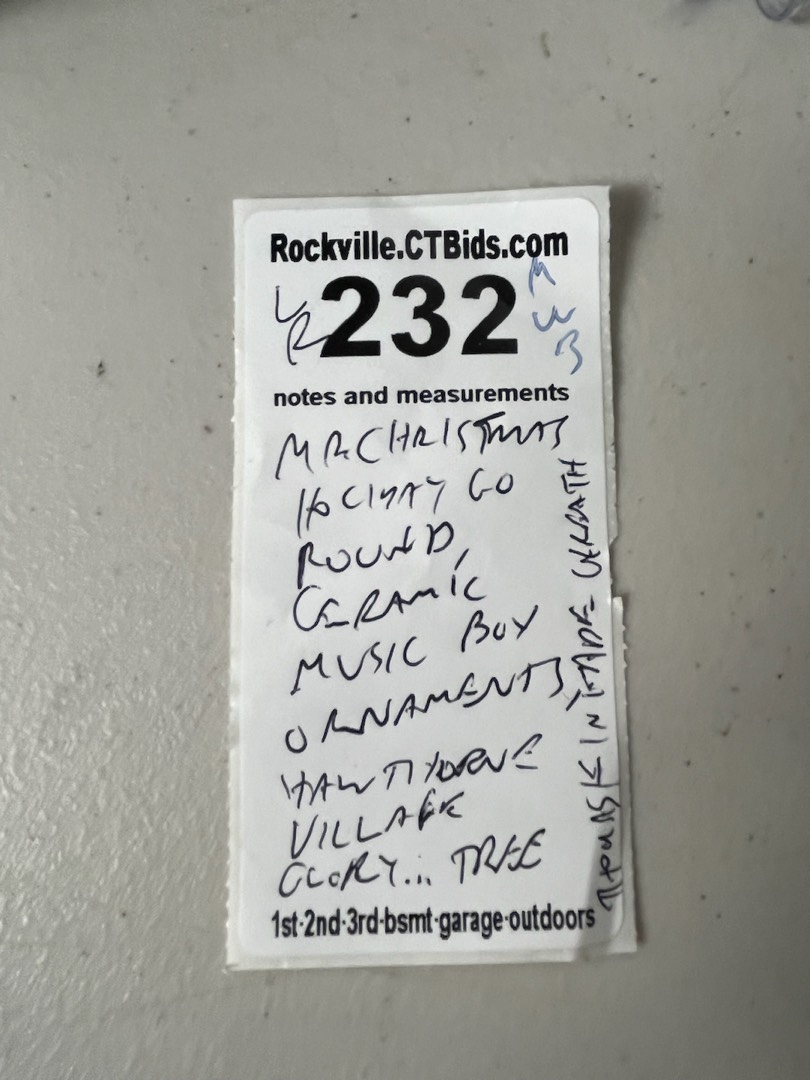 Rockville.CTBids.com
LR 232 MEB
notes and measurements
MR CHRISTMAS
HOLIDAY GO
ROUND,
CERAMIC
MUSIC BOX
ORNAMENTS,
HAWTHORNE
VILLAGE
GLORY... TREE
1st·2nd·3rd·bsmt·garage·outdoors
IN